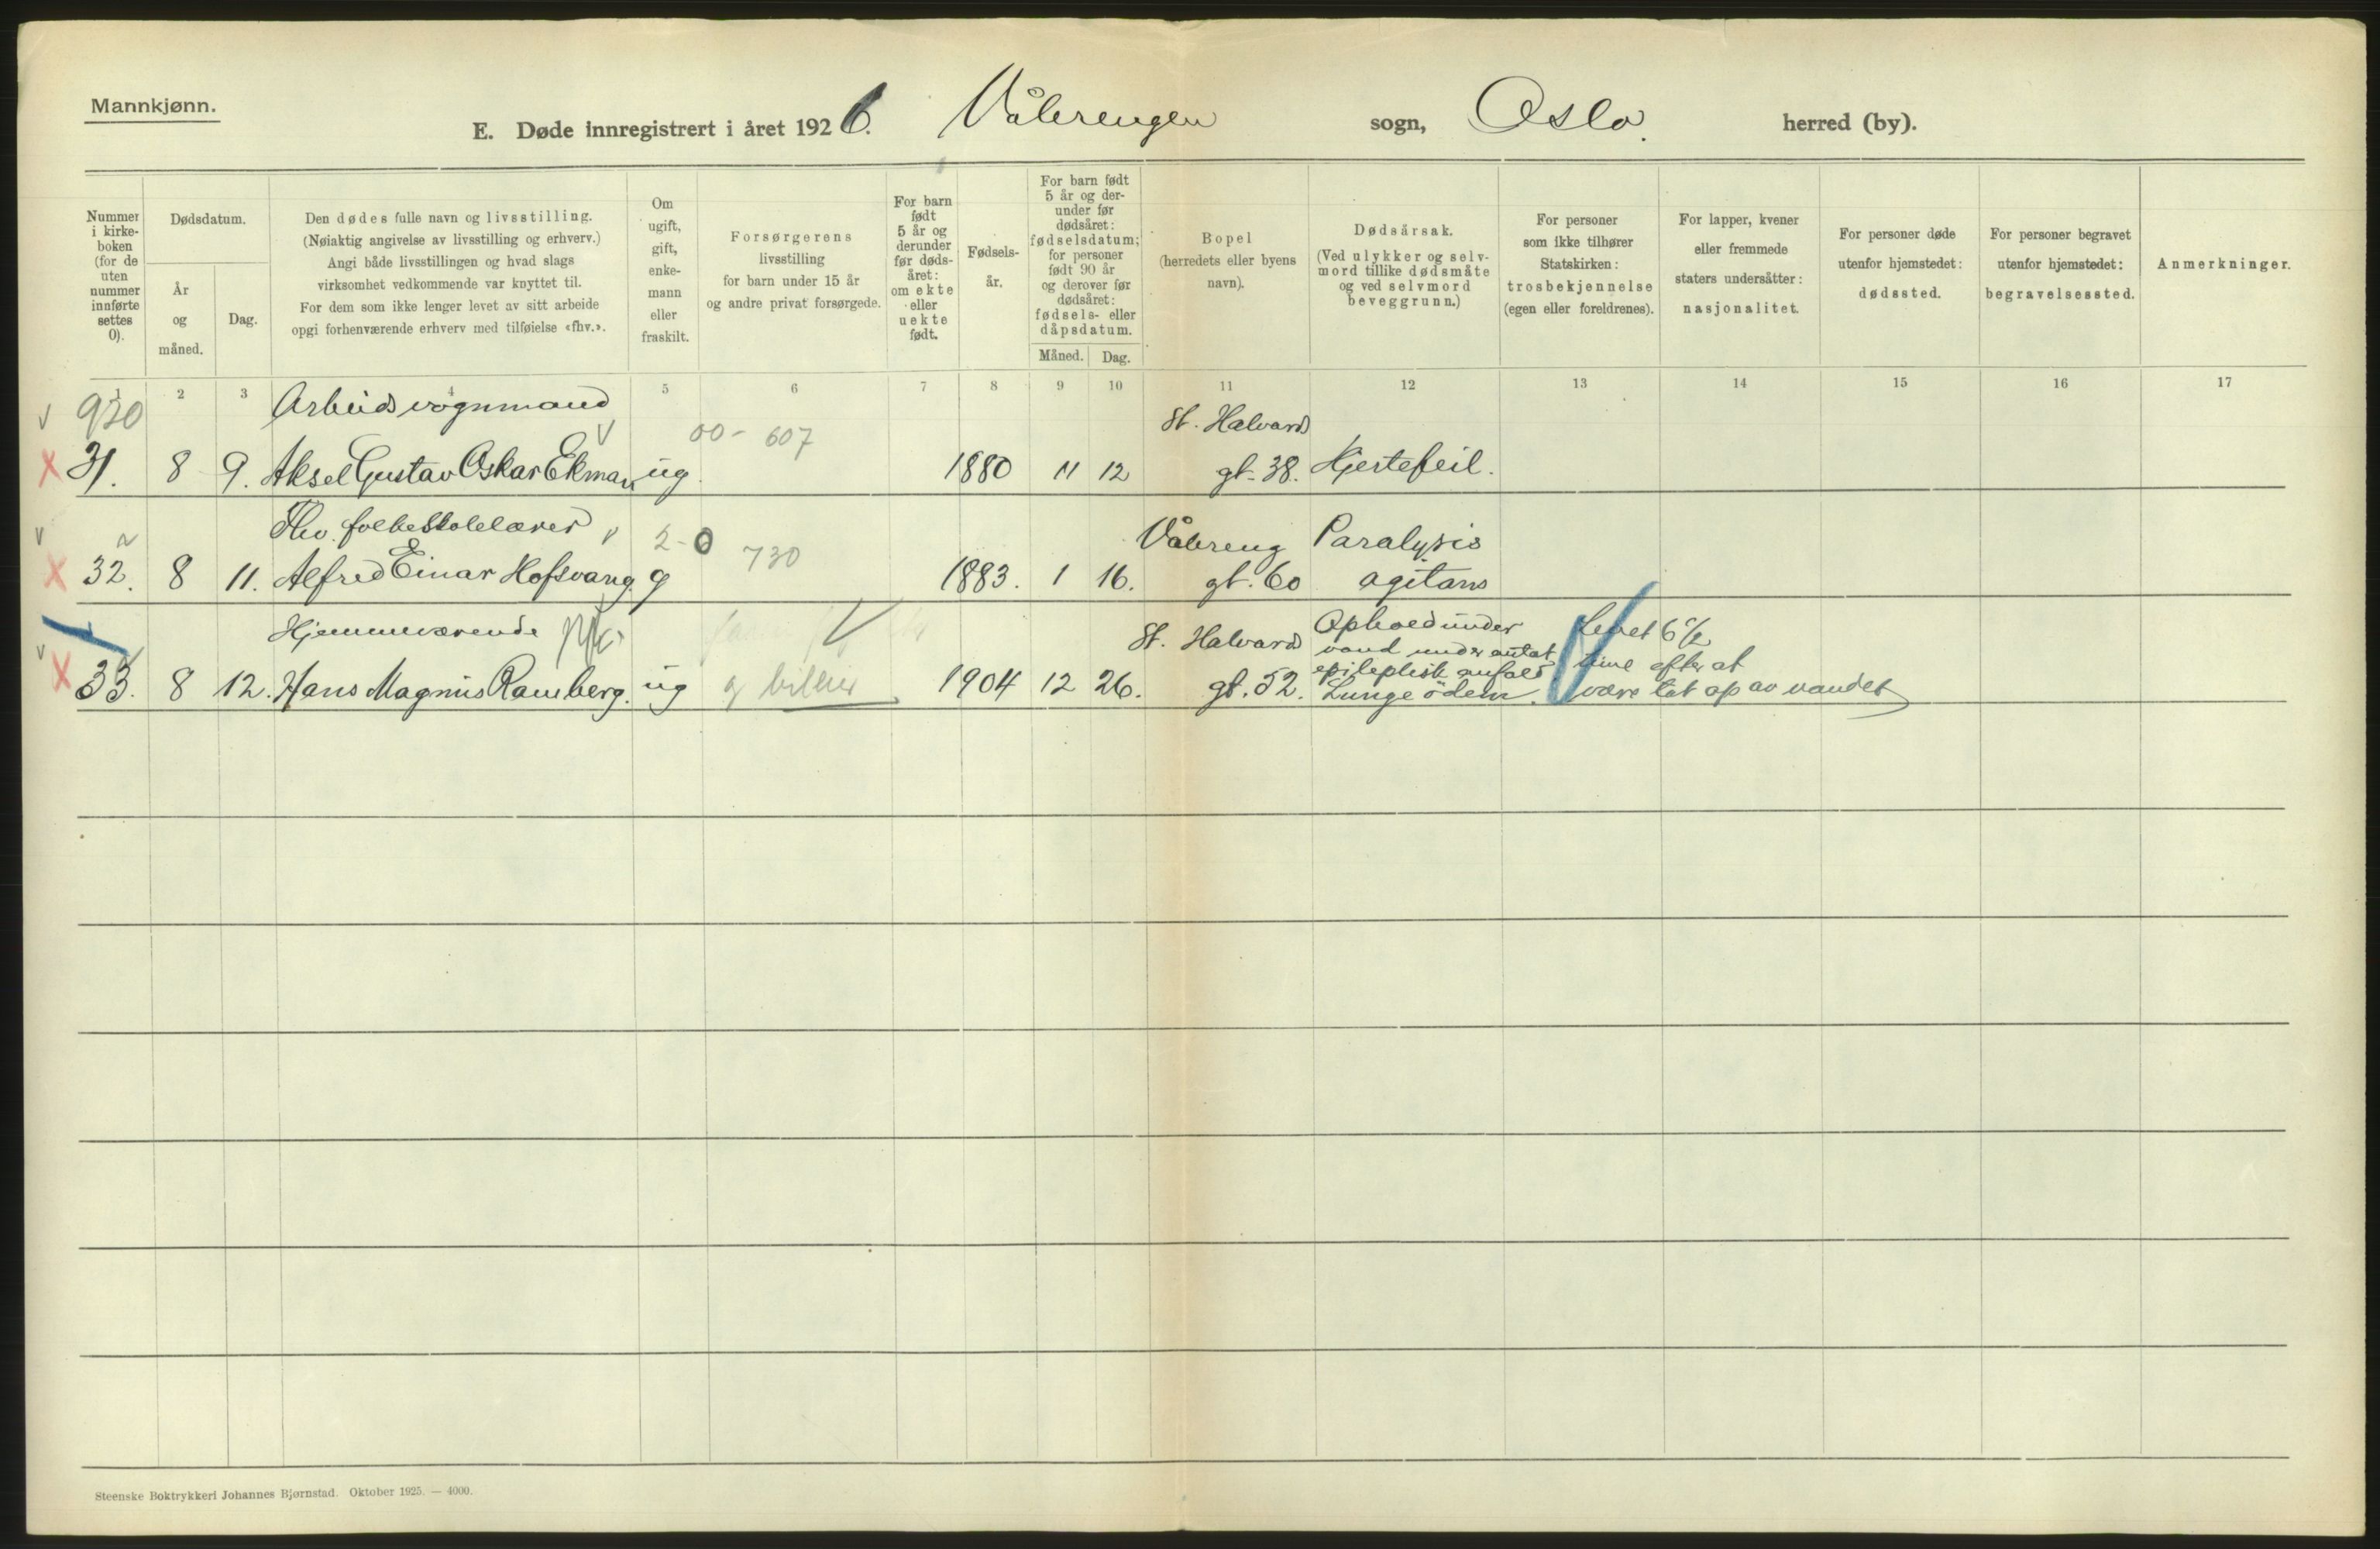 Mannkjønn.
E. Døde innregistrert i året 1926. Vålerengen sogn, Oslo. herred (by).
Nummer i kirkeboken (for de uten nummer innførte settes 0).
Dødsdatum.
År og måned.
Dag.
Den dødes fulle navn og livsstilling.
(Nøiaktig angivelse av livsstilling og erhverv.)
Angi både livsstillingen og hvad slags
virksomhet vedkommende var knyttet til.
For dem som ikke lenger levet av sitt arbeide
opgi forhenværende erhverv med tilføielse «fhv.».
Om ugift, gift, enkemann eller fraskilt.
Forsørgerens
livsstilling
for barn under 15 år
og andre privat forsørgede.
For barn født 5 år og derunder før dødsåret: om ekte eller uekte født.
Fødselsår.
For barn født 5 år og derunder før dødsåret: fødselsdatum; for personer født 90 år og derover før dødsåret: fødsels- eller dåpsdatum.
Måned. Dag.
Bopel
(herredets eller byens
navn).
Dødsårsak.
(Ved ulykker og selvmord tillike dødsmåte og ved selvmord beveggrunn.)
For personer
som ikke tilhører
Statskirken:
trosbekjennelse
(egen eller foreldrenes).
For lapper, kvener
eller fremmede
staters undersåtter:
nasjonalitet.
For personer døde
utenfor hjemstedet:
dødssted.
For personer begravet
utenfor hjemstedet:
begravelsessted.
Anmerkninger.
1 2 3 4 5 6 7 8 9 10 11 12 13 14 15 16 17
930 Arbeidsvognmand 00- 607 St. Halvards
31. 8 9. Aksel Gustav Oskar Ekman ug. 1880 11 12 gt. 38. Hjertefeil.
Fhv. folkeskolelærer 2-0 730 Vålereng Paralysis
32. 8 11. Alfred Einar Hofsvang. g 1883. 1 16. gt. 60 agitans
Hjemmeværende St. Halvards Ophold under Levet 6 1/2
vand under antat time efter at
epileptisk anfald
33. 8 12. Hans Magnus Ramberg. ug 1904 12 26. gt. 52. Lungeödem. være tat op av vandet
Steenske Boktrykkeri Johannes Bjørnstad. Oktober 1925. — 4000.